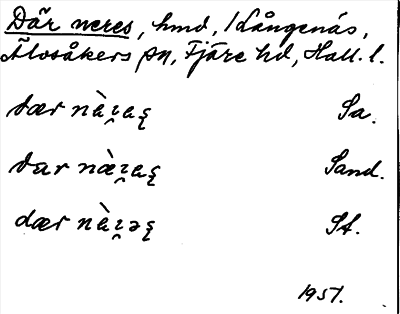 Där neres, hmd, /Långenäs,
Älvsåkers sn, Fjäre hd, Hall. l.
dær nὰɪ̯aʂ Sa.
dar næ̀ɪ̯aʂ Sand.
dær nὰɪ̯əʂ St.
1951.